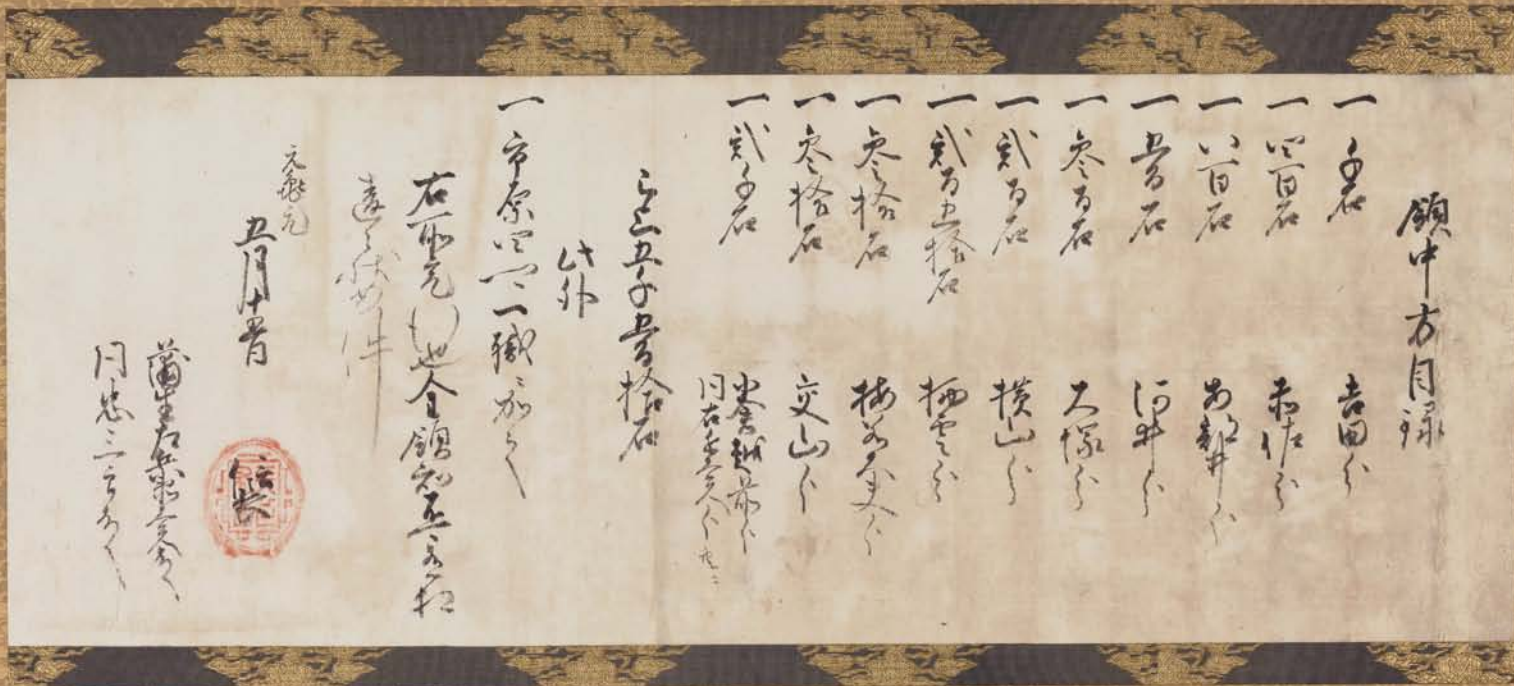 領中方目録
一 千石 吉田分
一 四百石 赤佐分
一 八百石 安部井分
一 壱百石 河井分
一 参百石 大塚分
一 弐百石 横山分
一 弐百五拾石 栖雲分
一 参拾石 梅若大夫分
一 参拾石 交山分
一 弐千石 小倉越前分
同右兵衛大夫分共ニ
已上五千壱百拾石
此外
一 市原四郷一職ニ加之
右所宛行也全領知不可有相
違之状如件
元亀元
五月十五日 信長
蒲生左兵衛大夫殿
同忠三郎殿